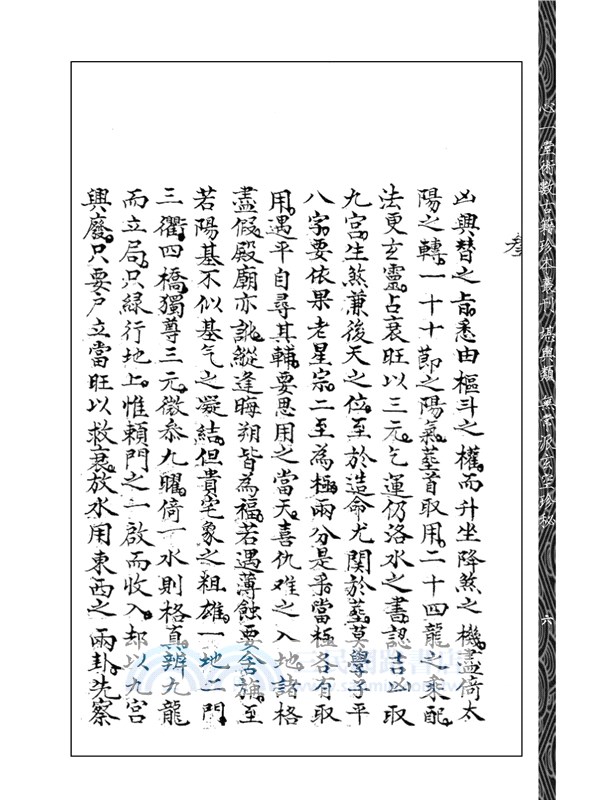 心一堂術數古籍珍本叢刊 堪輿類 無常派玄空珍秘
六
凶興替之旨。悉由樞斗之權。而升坐降煞之機。盡倚太
陽之轉。一十十節之陽氣。塟首取用。二十四龍之乘配。
法更玄靈。占衰旺以三元。乞運仍洛水之書。認吉凶取
九宮。生煞兼後天之位。至於造命尤関於塟。莫學子平
八字。要依果老星宗。二至為極。兩分是乎。當極各有取
用。遇平自尋其輔。要思用之當天。喜仇难之入地。諸格
盡假。殿廟亦訛。縱逢晦朔皆為福。若遇薄蝕要舍旃。至
若陽基不似基气之凝結。但貴宅象之粗雄。一地二門
三衢四橋。獨尊三元。微叅九曜。倚一水則格真。辨九龍
而立局。只緑行地上。惟頼門之一啟而收入。却以九宮
興廢。只要戶立當旺以救衰。放水用東西之兩卦。先察